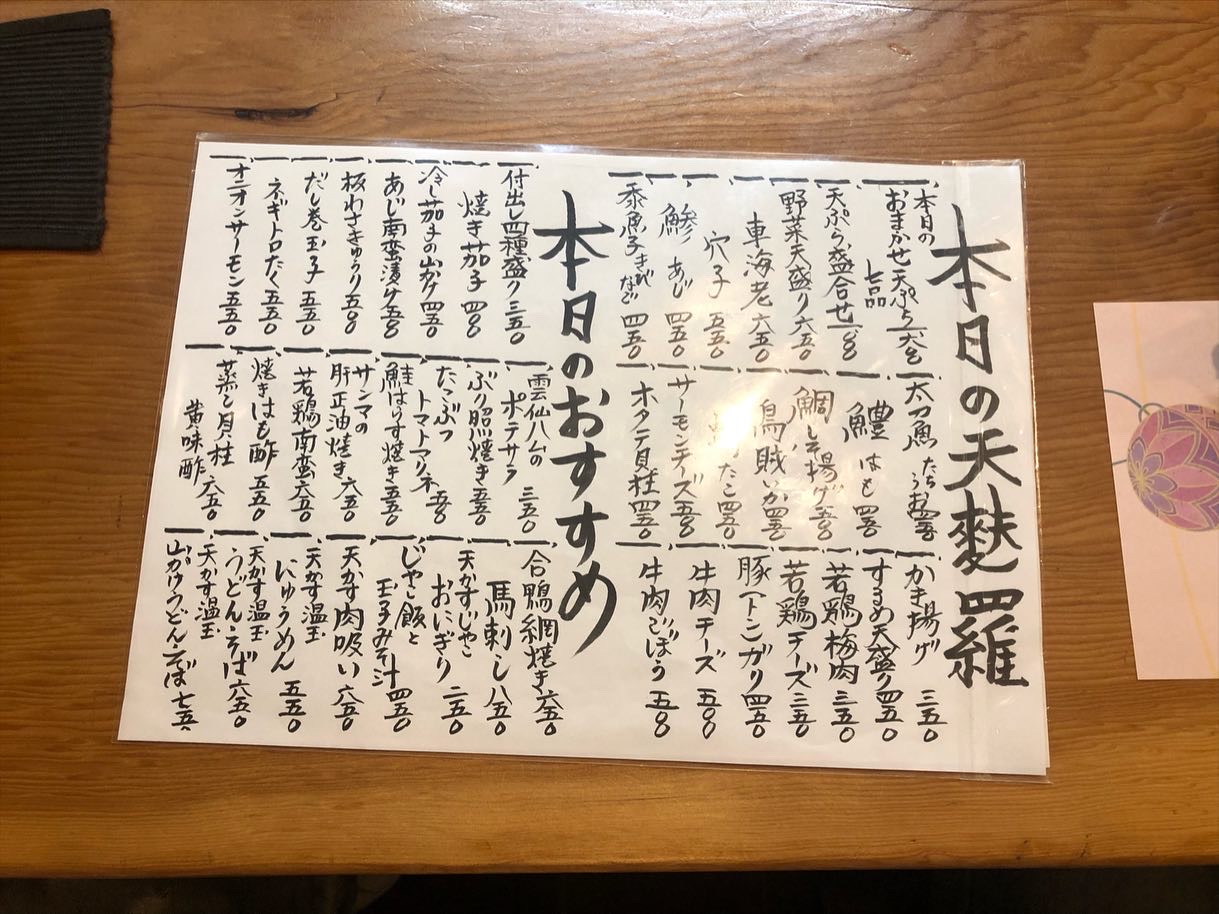 本日の天麩羅
本日の
おまかせ天ぷら
七品
天ぷら盛合せ
野菜天盛り 六五〇
車海老 六五〇
穴子 五五〇
鯵 あじ 四五〇
黍魚子 きびなご 四五〇
太刀魚 たちうお 四五〇
鱧 はも 四五〇
鯛しそ揚げ 五五〇
烏賊 いか 四五〇
たこ 四五〇
サーモンチーズ 五五〇
ホタテ貝柱 四五〇
かき揚げ 三五〇
するめ天盛り 四五〇
若鶏梅肉 三五〇
若鶏チーズ 三五〇
豚(トンガリ 四五〇
牛肉チーズ 五五〇
牛肉ごぼう 五五〇
本日のおすすめ
付出し四種盛り 三五〇
焼き茄子 四〇〇
冷し茄子の山かけ 四五〇
あじ南蛮漬け 五五〇
板わさきゅうり 五五〇
だし巻玉子 五五〇
ネギトロたく 五五〇
オニオンサーモン 五五〇
雲仙ハムの
ポテサラ 三五〇
ぶり照焼き 五五〇
たこぶつ
トマトマリネ 五五〇
鮭はらす焼き 五五〇
サンマの
肝正油焼き 六五〇
若鶏南蛮 六五〇
焼きはも酢 五五〇
蒸し貝柱
黄味酢 六五〇
合鴨網焼き 六五〇
馬刺し 八五〇
天かすじゃこ
おにぎり 二五〇
じゃこ飯と
玉子みそ汁 四五〇
天かす肉吸い 六五〇
天かす温玉
にゅうめん 五五〇
天かす温玉
うどん・そば 六五〇
天かす温玉
山かけうどん・そば 七五〇